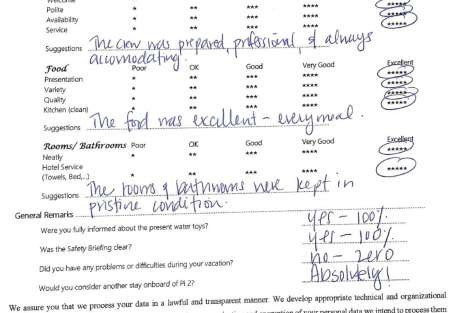 Polite * ** *** **** *****
Availability * ** *** **** *****
Service * ** *** **** *****
Suggestions The crew was prepared, professional, & always
accomodating.
Food Poor OK Good Very Good Excellent
Presentation * ** *** **** *****
Variety * ** *** **** *****
Quality * ** *** **** *****
Kitchen (clean) * ** *** **** *****
Suggestions The food was excellent - every meal.
Rooms/ Bathrooms Poor OK Good Very Good Excellent
Neatly * ** *** **** *****
Hotel Service
(Towels, Bed,..) * ** *** **** *****
Suggestions The rooms & bathrooms were kept in
pristine condition.
General Remarks
Were you fully informed about the present water toys? yes - 100%
Was the Safety Briefing clear? yes - 100%
Did you have any problems or difficulties during your vacation? no - zero
Would you consider another stay onboard of Pi 2? Absolutely!
We assure you that we process your data in a lawful and transparent manner. We develop appropriate technical and organizational
of your personal data we intend to process them